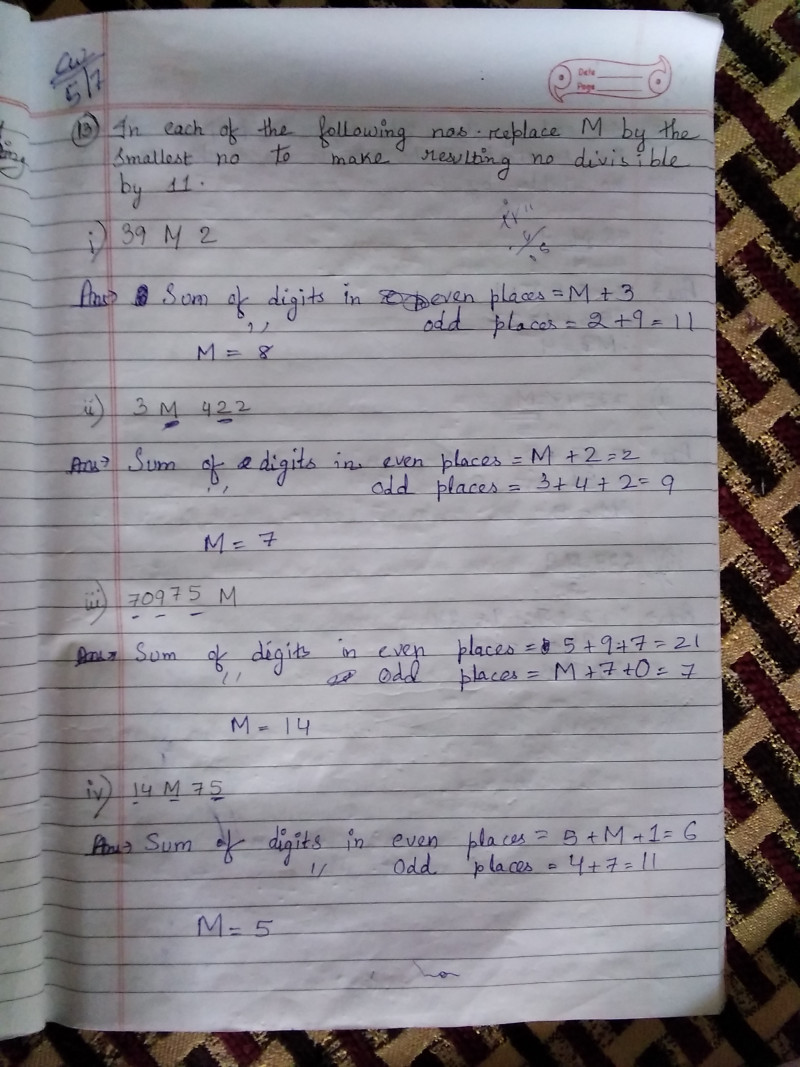 CW
5/7
Date
Page
(13) In each of the following nos. replace M by the
smallest no to make resulting no divisible
by 11.
i) 39 M 2
Ans→ Sum of digits in even places = M + 3
,, odd places = 2 + 9 = 11
M = 8
ii) 3 M 422
Ans→ Sum of digits in even places = M + 2 = 2
,, odd places = 3 + 4 + 2 = 9
M = 7
iii) 70975 M
Ans→ Sum of digits in even places = 5 + 9 + 7 = 21
,, odd places = M + 7 + 0 = 7
M = 14
iv) 14 M 75
Ans→ Sum of digits in even places = 5 + M + 1 = 6
,, odd places = 4 + 7 = 11
M = 5